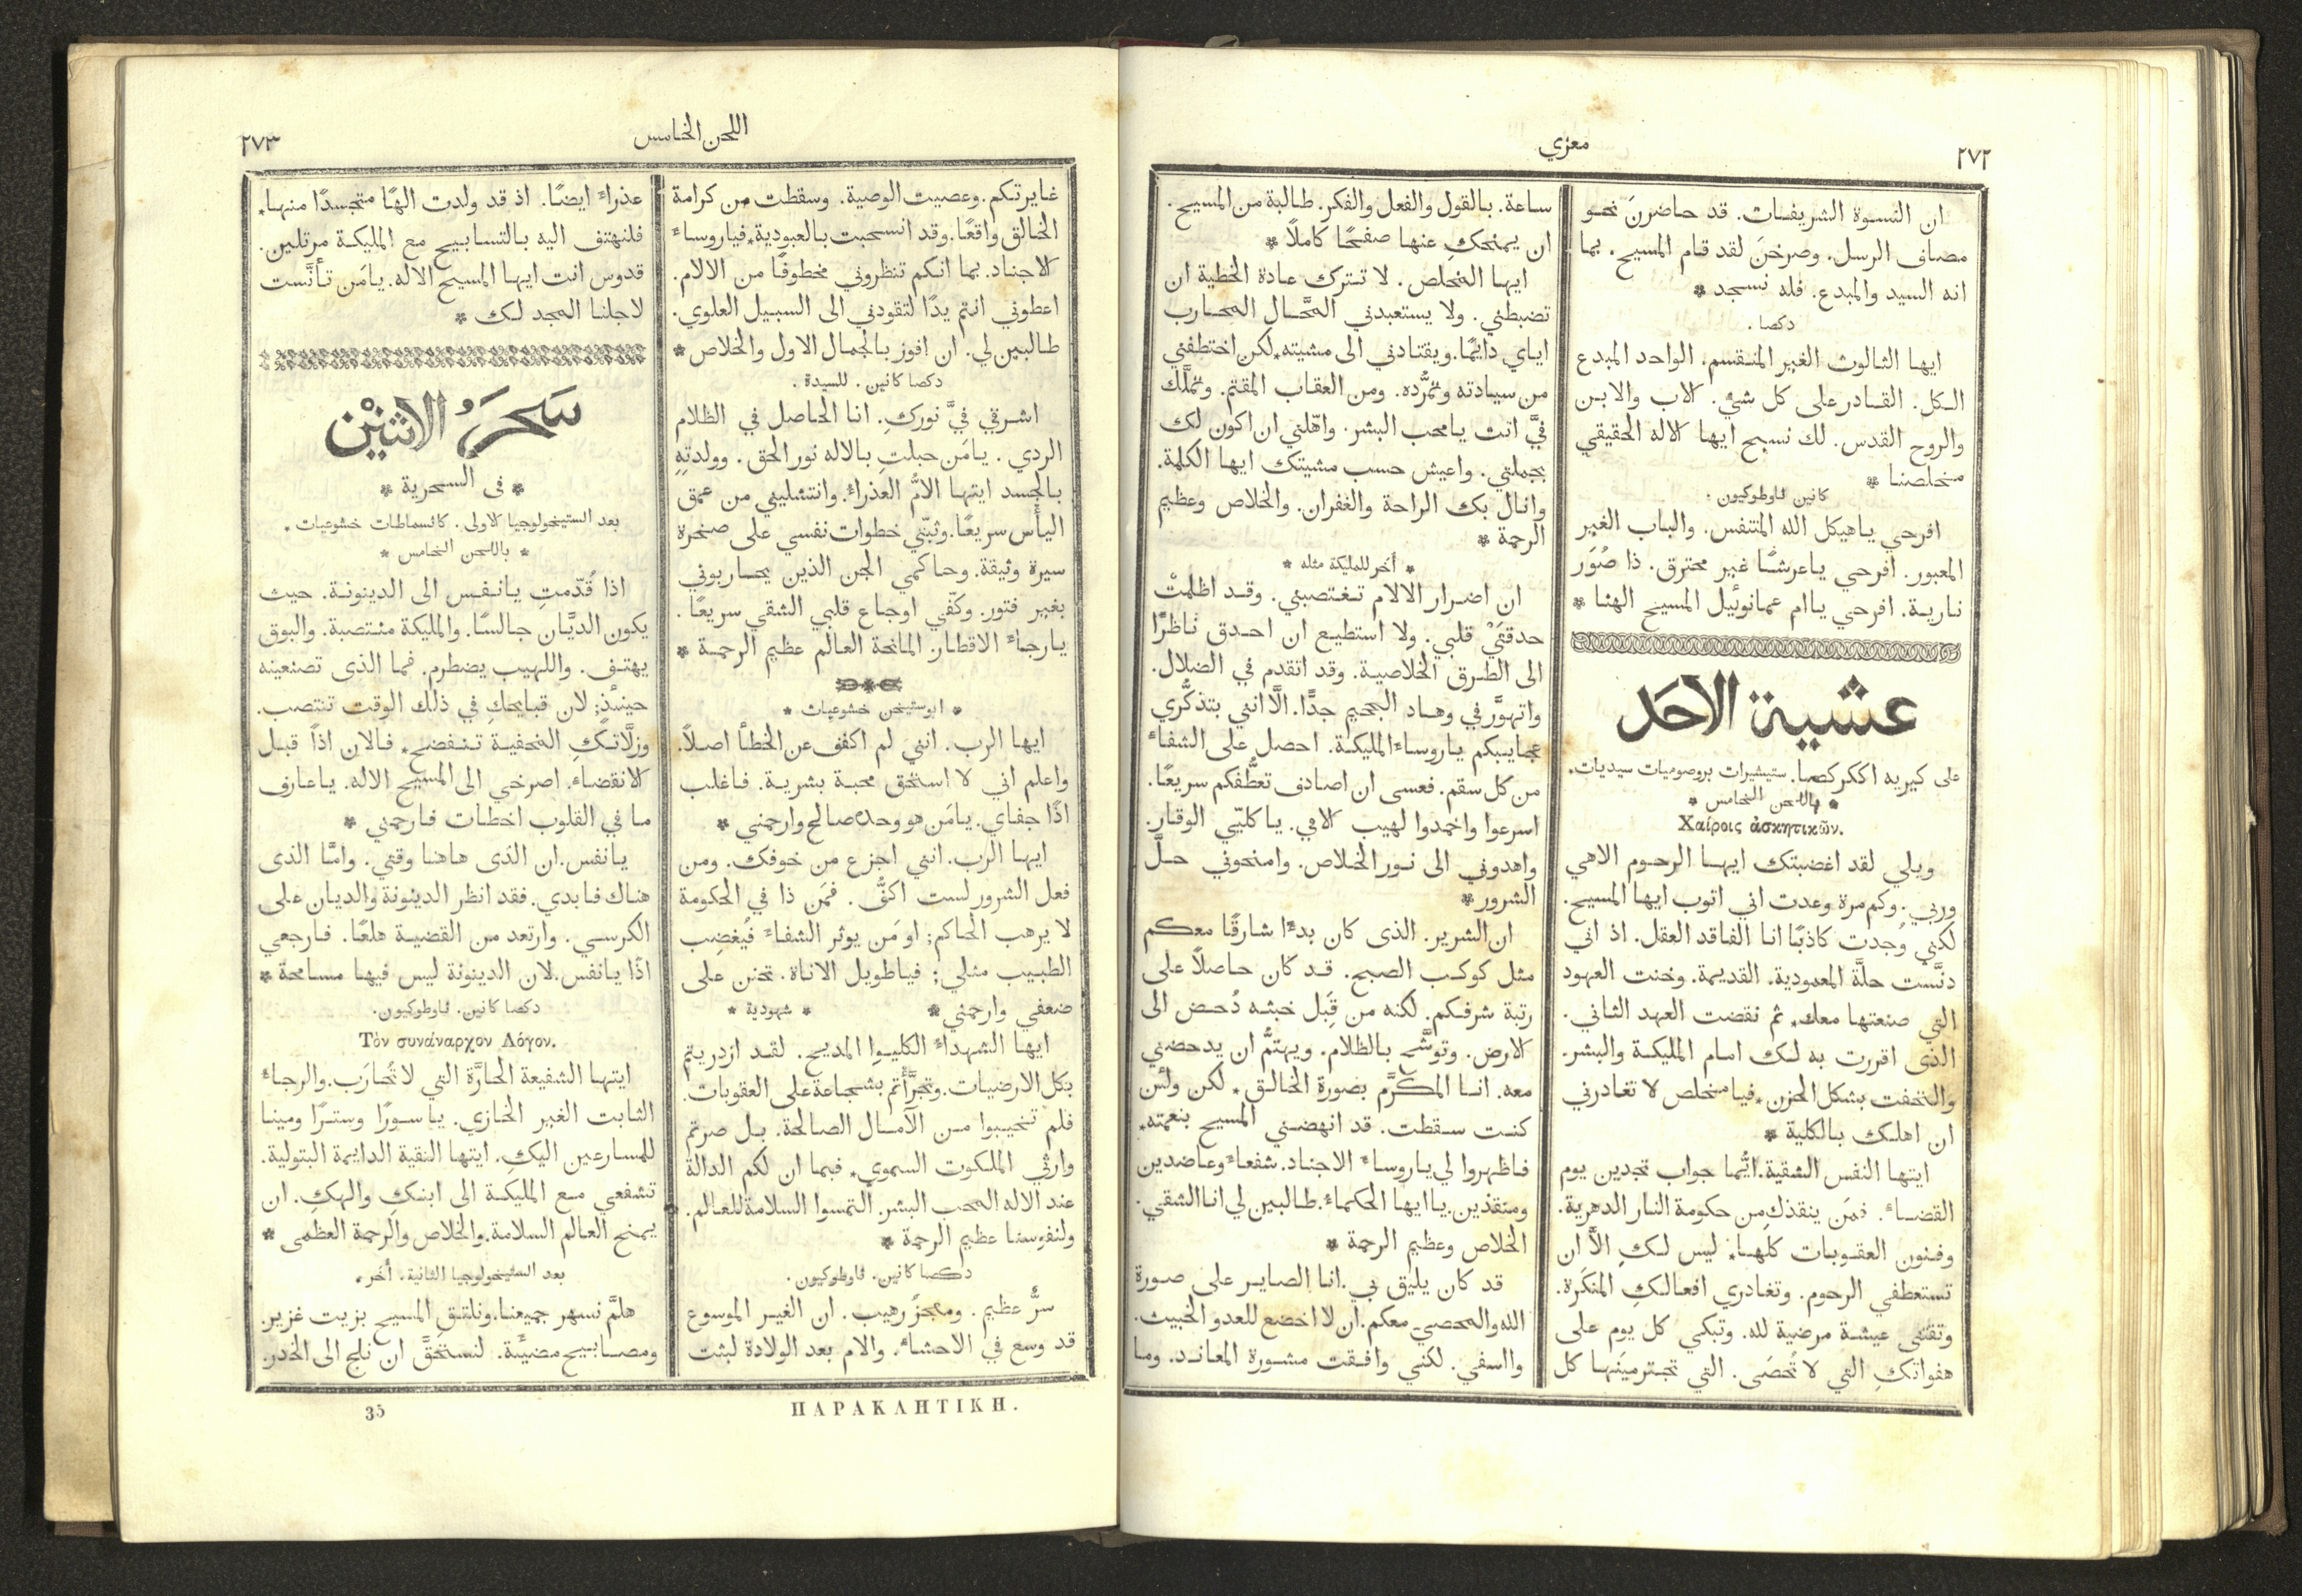 ٢٧٢
معزي
ان النسوة الشريفات. قد حاضرنَ نحو
مصاف الرسل. وصرخنَ لقد قام المسيح. بما
انه السيد والمبدع. فله نسجد *
دكصا.
ايها الثالوث الغير المنقسم. الواحد المبدع
الكل. القادر على كل شيٍ. الاب والابن
والروح القدس. لك نسبح ايها الاله الحقيقي
مخلصنا *
كانين ثاوطوكيون.
افرحي ياهيكل الله المتنفس. والباب الغير
المعبور. افرحي ياعرشًا غير محترق. ذا صُوَر
نارية. افرحي ياام عمانوئيل المسيح الهنا *
عشية الاحَد
على كيريه اككركصا. ستيشيرات بروصوميات سيديات.
* باللحن الخامس *
Χαίροις ἀσκητικῶν.
ويلي لقد اغضبتك ايها الرحوم الاهي
وربي. وكم مرة وعدت اني اتوب ايها المسيح.
لكني وُجدت كاذبًا انا الفاقد العقل. اذ اني
دنَّست حلَّة المعمودية. القديمة. وخنت العهود
التي صنعتها معك. ثم نقضت العهد الثاني.
الذى اقررت به لك امام المليكة والبشر.
والتحفت بشكل الحزن * فيا مخلص لا تغادرني
ان اهلك بالكلية *
ايتها النفس الشقية. ايُّما جواب تجدين يوم
القضاءِ. فمَن ينقذكِ من حكومة النار الدهرية.
وفنون العقوبات كلها. ليس لكِ الَّا ان
تستعطفي الرحوم. وتغادري افعالكِ المنكَرة.
وتقتني عيشة مرضية لله. وتبكي كل يوم على
هفواتكِ التي لا تُحصَى. التي تجترمينَها كل
ساعة. بالقول والفعل والفكر. طالبة من المسيح.
ان يمنحكِ عنها صفحًا كاملًا *
ايها المخلص. لا تترك عادة الخطية ان
تضبطني. ولا يستعبدني المَّحال المحارب
اياي دايمًا. ويقتادني الى مشيته. لكن اختطفني
من سيادته وتمرُّده. ومن العقاب المقتم. وتملَّك
فيَّ انت يامحب البشر. واهّلني ان اكون لك
بجملتي. واعيش حسب مشيتك ايها الكلمة.
وانال بك الراحة والغفران. والخلاص وعظيم
الرحمة *
* أخر للمليكة مثله *
ان اضرار الالام تغتصبني. وقد اظلمتْ
حدقتَيْ قلبي. ولا استطيع ان احدق ناظرًا
الى الطرق الخلاصية. وقد اتقدم في الضلال.
واتهوَّر في وهاد الجحيم جدًّا. الَّا انني بتذكُّري
عجايبكم ياروساءَ المليكة. احصل على الشفاءِ
من كل سقم. فعسى ان اصادف تعطُّفكم سريعًا.
اسرعوا واخمدوا لهيب كلامي. ياكليّي الوقار.
واهدوني الى نور الخلاص. وامنحوني حلَّ
الشرور *
ان الشرير. الذى كان بدءًا شارقًا معكم
مثل كوكب الصبح. قد كان حاصلًا على
رتبة شرفكم. لكنه من قِبَل خبثه دُحض الى
الارض. وتوشَّح بالظلام. ويهتمُّ ان يدحضني
معه. انا المكرَّم بصورة الخالق * لكن ولئن
كنت سقطت. قد انهضني المسيح بنعمته.
فاظهروا لي ياروساءَ الاجناد. شفعاءَ وعاضدين
ومنقذين. ياايها الحكماءُ. طالبين لي انا الشقي.
الخلاص وعظيم الرحمة *
قد كان يليق بي. انا الصاير على صورة
الله والمحصي معكم. ان لا اخضع للعدو الخبيث.
وااسفي. لكني وافقت مشورة المعاند. وما
اللحن الخامس
٢٧٣
غايرتكم. وعصيت الوصية. وسقطت من كرامة
الخالق واقعًا. وقد انسحبت بالعبودية. فياروساءَ
الاجناد. بما انكم تنظروني مخطوفًا من الالام.
اعطوني انتم يدًا لتقودني الى السبيل العلوي.
طالبين لي. ان افوز بالجمال الاول والخلاص *
دكصا كانين. للسيدة.
اشرقي فيَّ نوركِ. انا الحاصل في الظلام
الردي. يامَن حبلتِ بالاله نور الحق. وولدتِهِ
بالجسد ايتها الامُّ العذراءُ. وانتشليني من عمق
اليأس سريعًا. وثبّتي خطوات نفسي على صخرة
سيرة وثيقة. وحاكمي الجن الذين يحاربوني
بغير فتور. وكفّي اوجاع قلبي الشقي سريعًا.
يارجاءَ الاقطار. المانحة العالم عظيم الرحمة *
* ابوستيخن خشوعيات *
ايها الرب. انني لم اكفف عن الخطأ اصلًا.
واعلم اني لا استحق محبة بشرية. فاغلب
اذًا جفاي. يامَن هو وحده صالح وارحمني *
ايها الرب. انني اجزع من خوفك. ومن
فعل الشرور لست اكفُّ. فمَن ذا في الحكومة
لا يرهب الحاكم; او مَن يوثر الشفاءَ فيُغضِب
الطبيب مثلي; فياطويل الاناة. تحنن على
ضعفي وارحمني * * شهودية *
ايها الشهداءُ الكليوا المديح. لقد ازدريتم
بكل الارضيات. وتجرَّأتم بشجاعة على العقوبات.
فلم تخيبوا من الآمال الصالحة. بل صرتم
وارثي الملكوت السموي. فبما ان لكم الدالة
عند الاله المحب البشر. التمسوا السلامة للعالم.
ولنفوسنا عظيم الرحمة *
دكصا كانين. ثاوطوكيون.
سرٌّ عظيم. ومعجزٌ رهيب. ان الغير الموسوع
قد وسع في الاحشاءِ. والام بعد الولادة لبثت
عذراءَ ايضًا. اذ قد ولدت الهًا متجسدًا منها.
فلنهتف اليه بالتسابيح مع المليكة مرتلين.
قدوس انت ايها المسيح الاله. يامَن تأنَّست
لاجلنا المجد لك *
سَحَرَ الاثنَيْن
* فى السحرية *
بعد الستيخولوجيا الاولى. كاثسماطات خشوعيات.
* باللحن الخامس *
اذا قُدّمتِ يانفس الى الدينونة. حيث
يكون الديَّان جالسًا. والمليكة منتصبة. والبوق
يهتف. واللهيب يضطرم. فما الذى تصنعينه
حينئذٍ; لان قبايحكِ في ذلك الوقت تنتصب.
وزلَّاتكِ المخفية تنفضح. فالان اذًا قبل
الانقضاءِ. اصرخي الى المسيح الاله. ياعارف
ما في القلوب اخطات فارحمني *
يانفس. ان الذى هاهنا وقتي. وامَّا الذى
هناك فابدي. فقد انظر الدينونة والديان على
الكرسي. وارتعد من القضية هلعًا. فارجعي
اذًا يانفس. لان الدينونة ليس فيها مسامحة *
دكصا كانين. ثاوطوكيون.
Τὸν συνάναρχον Λόγον.
ايتها الشفيعة الحارَّة التي لا تُحارَب. والرجاءُ
الثابت الغير الخازي. ياسورًا وسترًا ومينا
للمسارعين اليكِ. ايتها النقية الدايمة البتولية.
تشفعي مع المليكة الى ابنكِ والهكِ. ان
يمنح العالم السلامة. والخلاص والرحمة العظمى *
بعد الستيخولوجيا الثانية. أخر.
هلمَّ نسهر جميعنا. ونلتقِ المسيح بزيت غزير.
ومصابيح مضيئة. لنستحقَّ ان نلج الى الخدر.
ΠΑΡΑΚΛΗΤΙΚΗ.
35